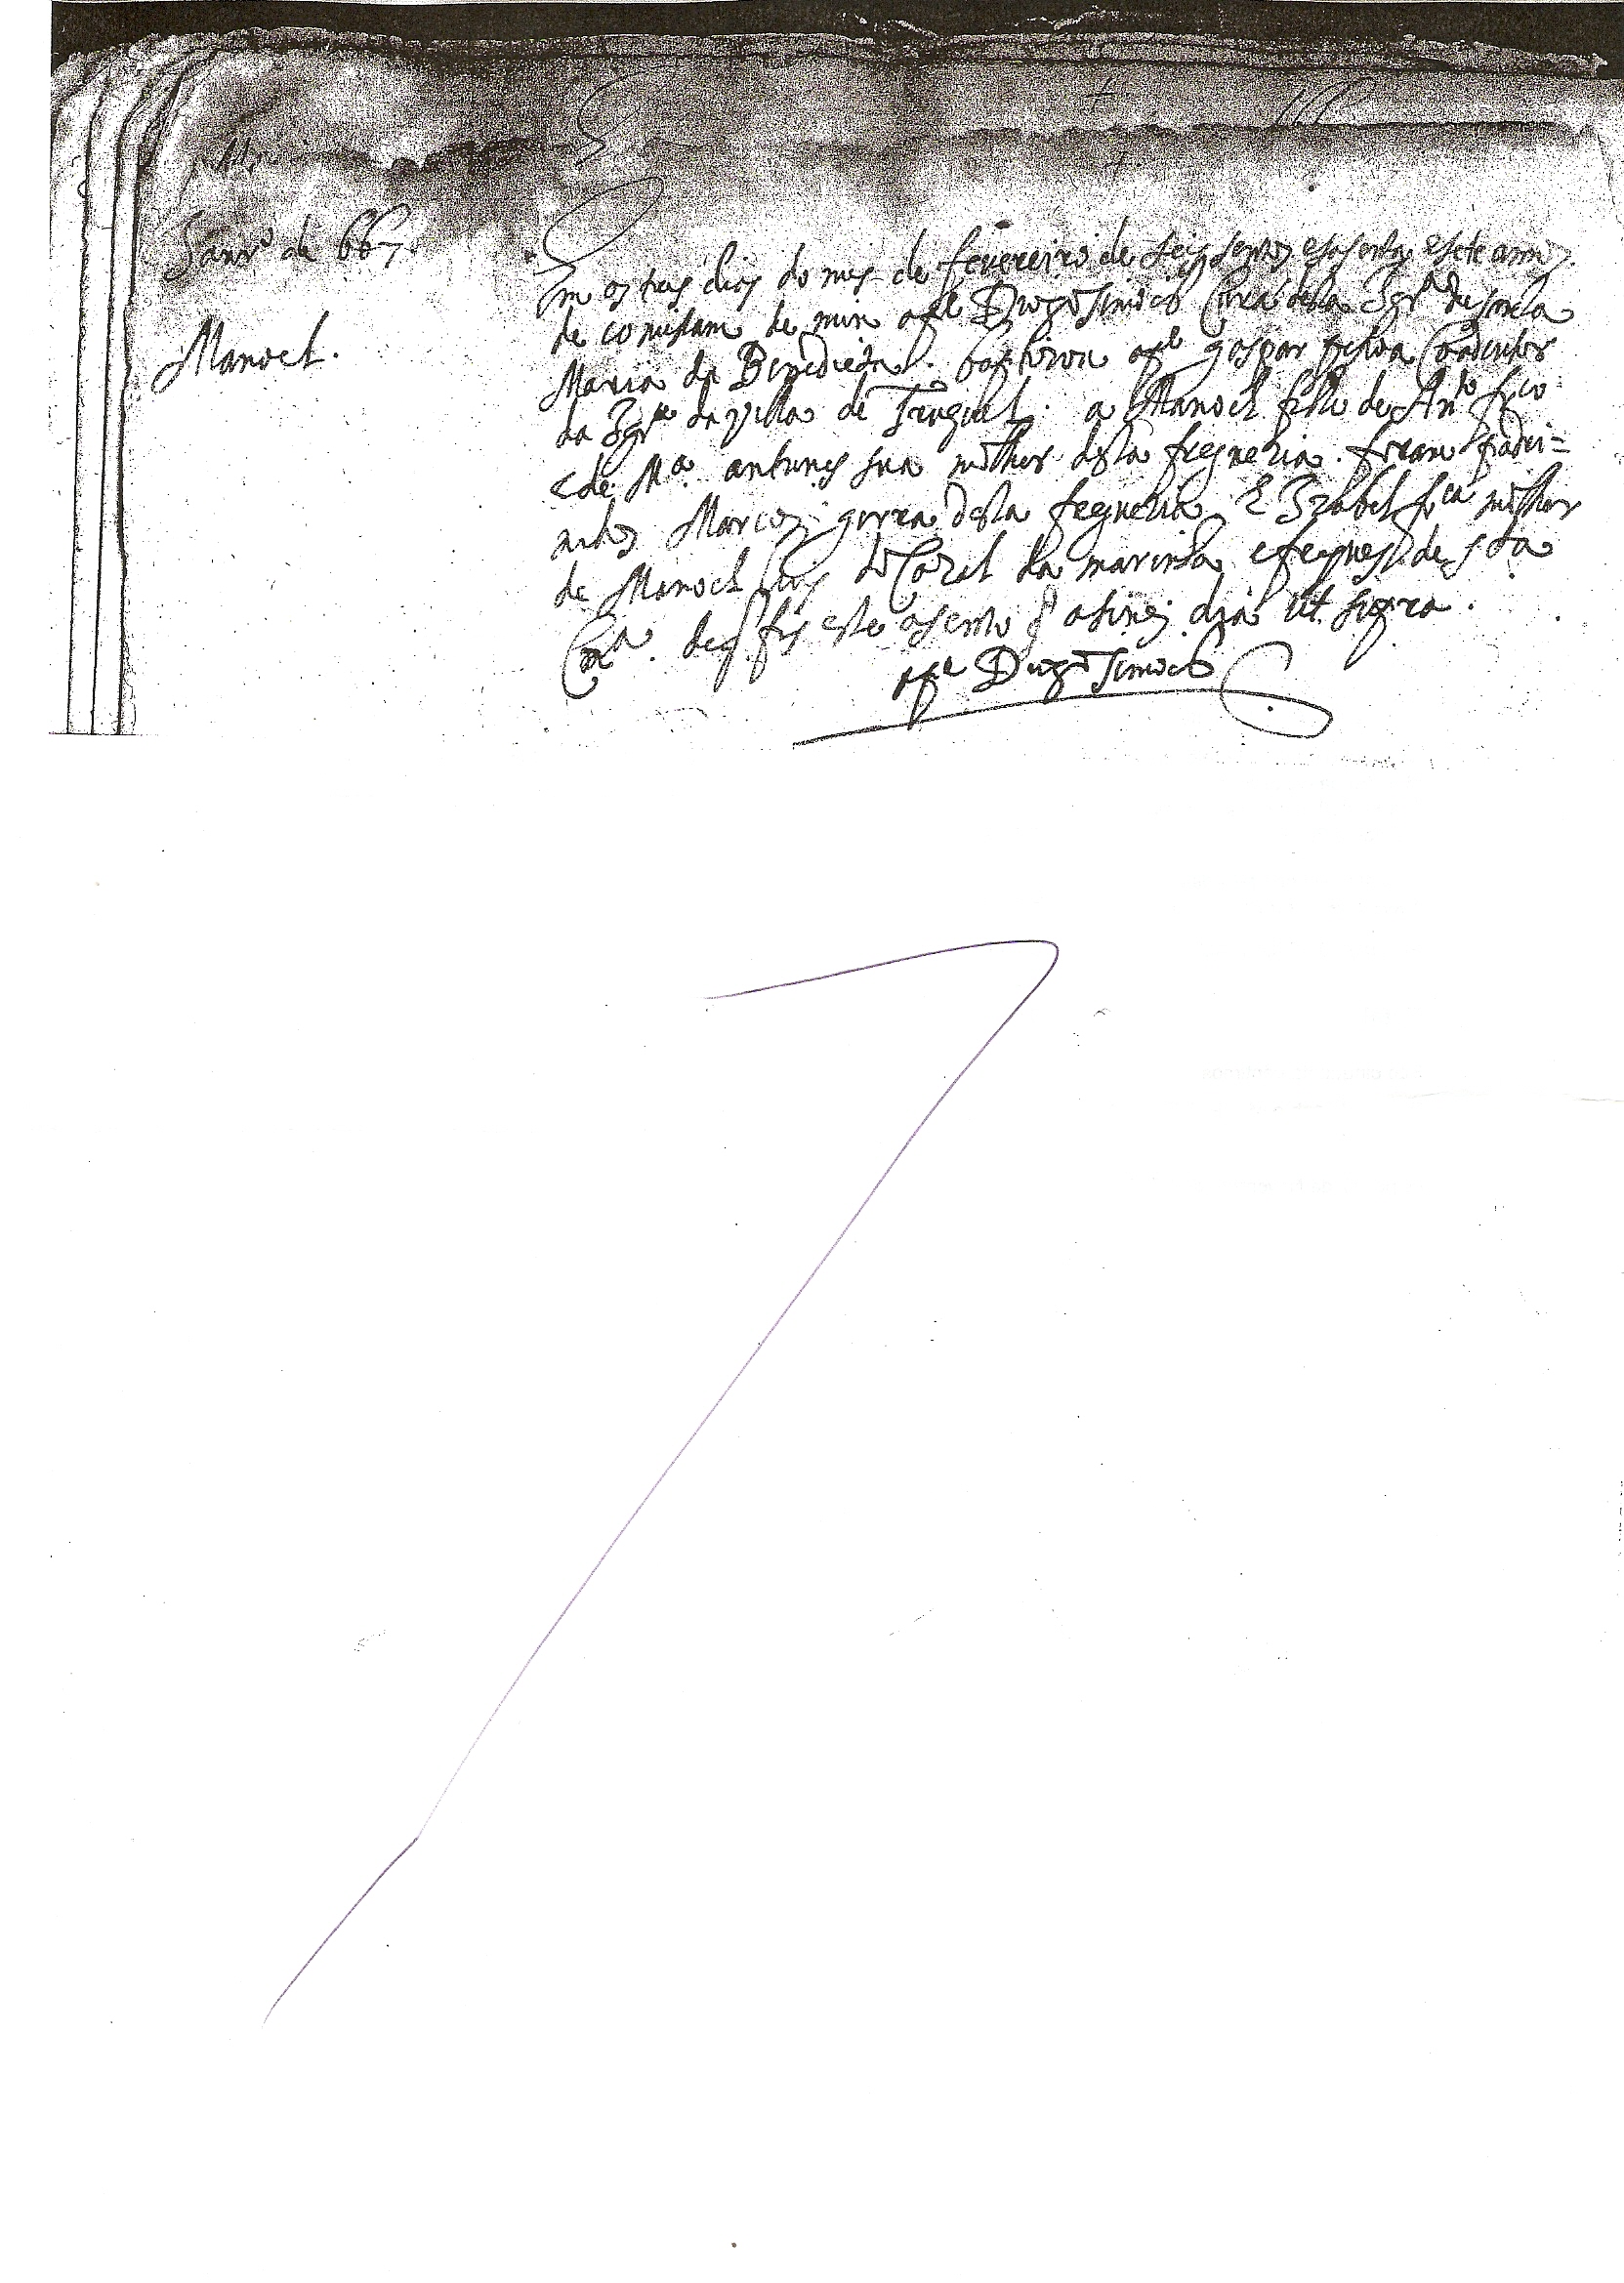 Janrº de 667
Manoel.
Em os tres dias do mes de fevereiro de seis sentos e sasenta e sete annos.
de comisam de mim o Pe Diogo Cura desta Igrª de santa
Maria da Benedicta. baptizou o Pe gaspar Coadiutor
da Igrª da villa de Truquel. a Manoel filho de Antº frco
e de Mª antunes sua molher desta freguezia. foram padri=
nhos Marcos gerra desta freguezia E Izabel frca molher
de Manoel luis do Cazal da marinha e fregues de sta
Cnª. de q fis este asento q asinej dia ut supra.
o Pe Diogo